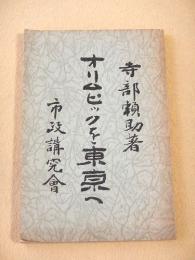 寺部頼助著
オリムピックを東京へ
市政講究會